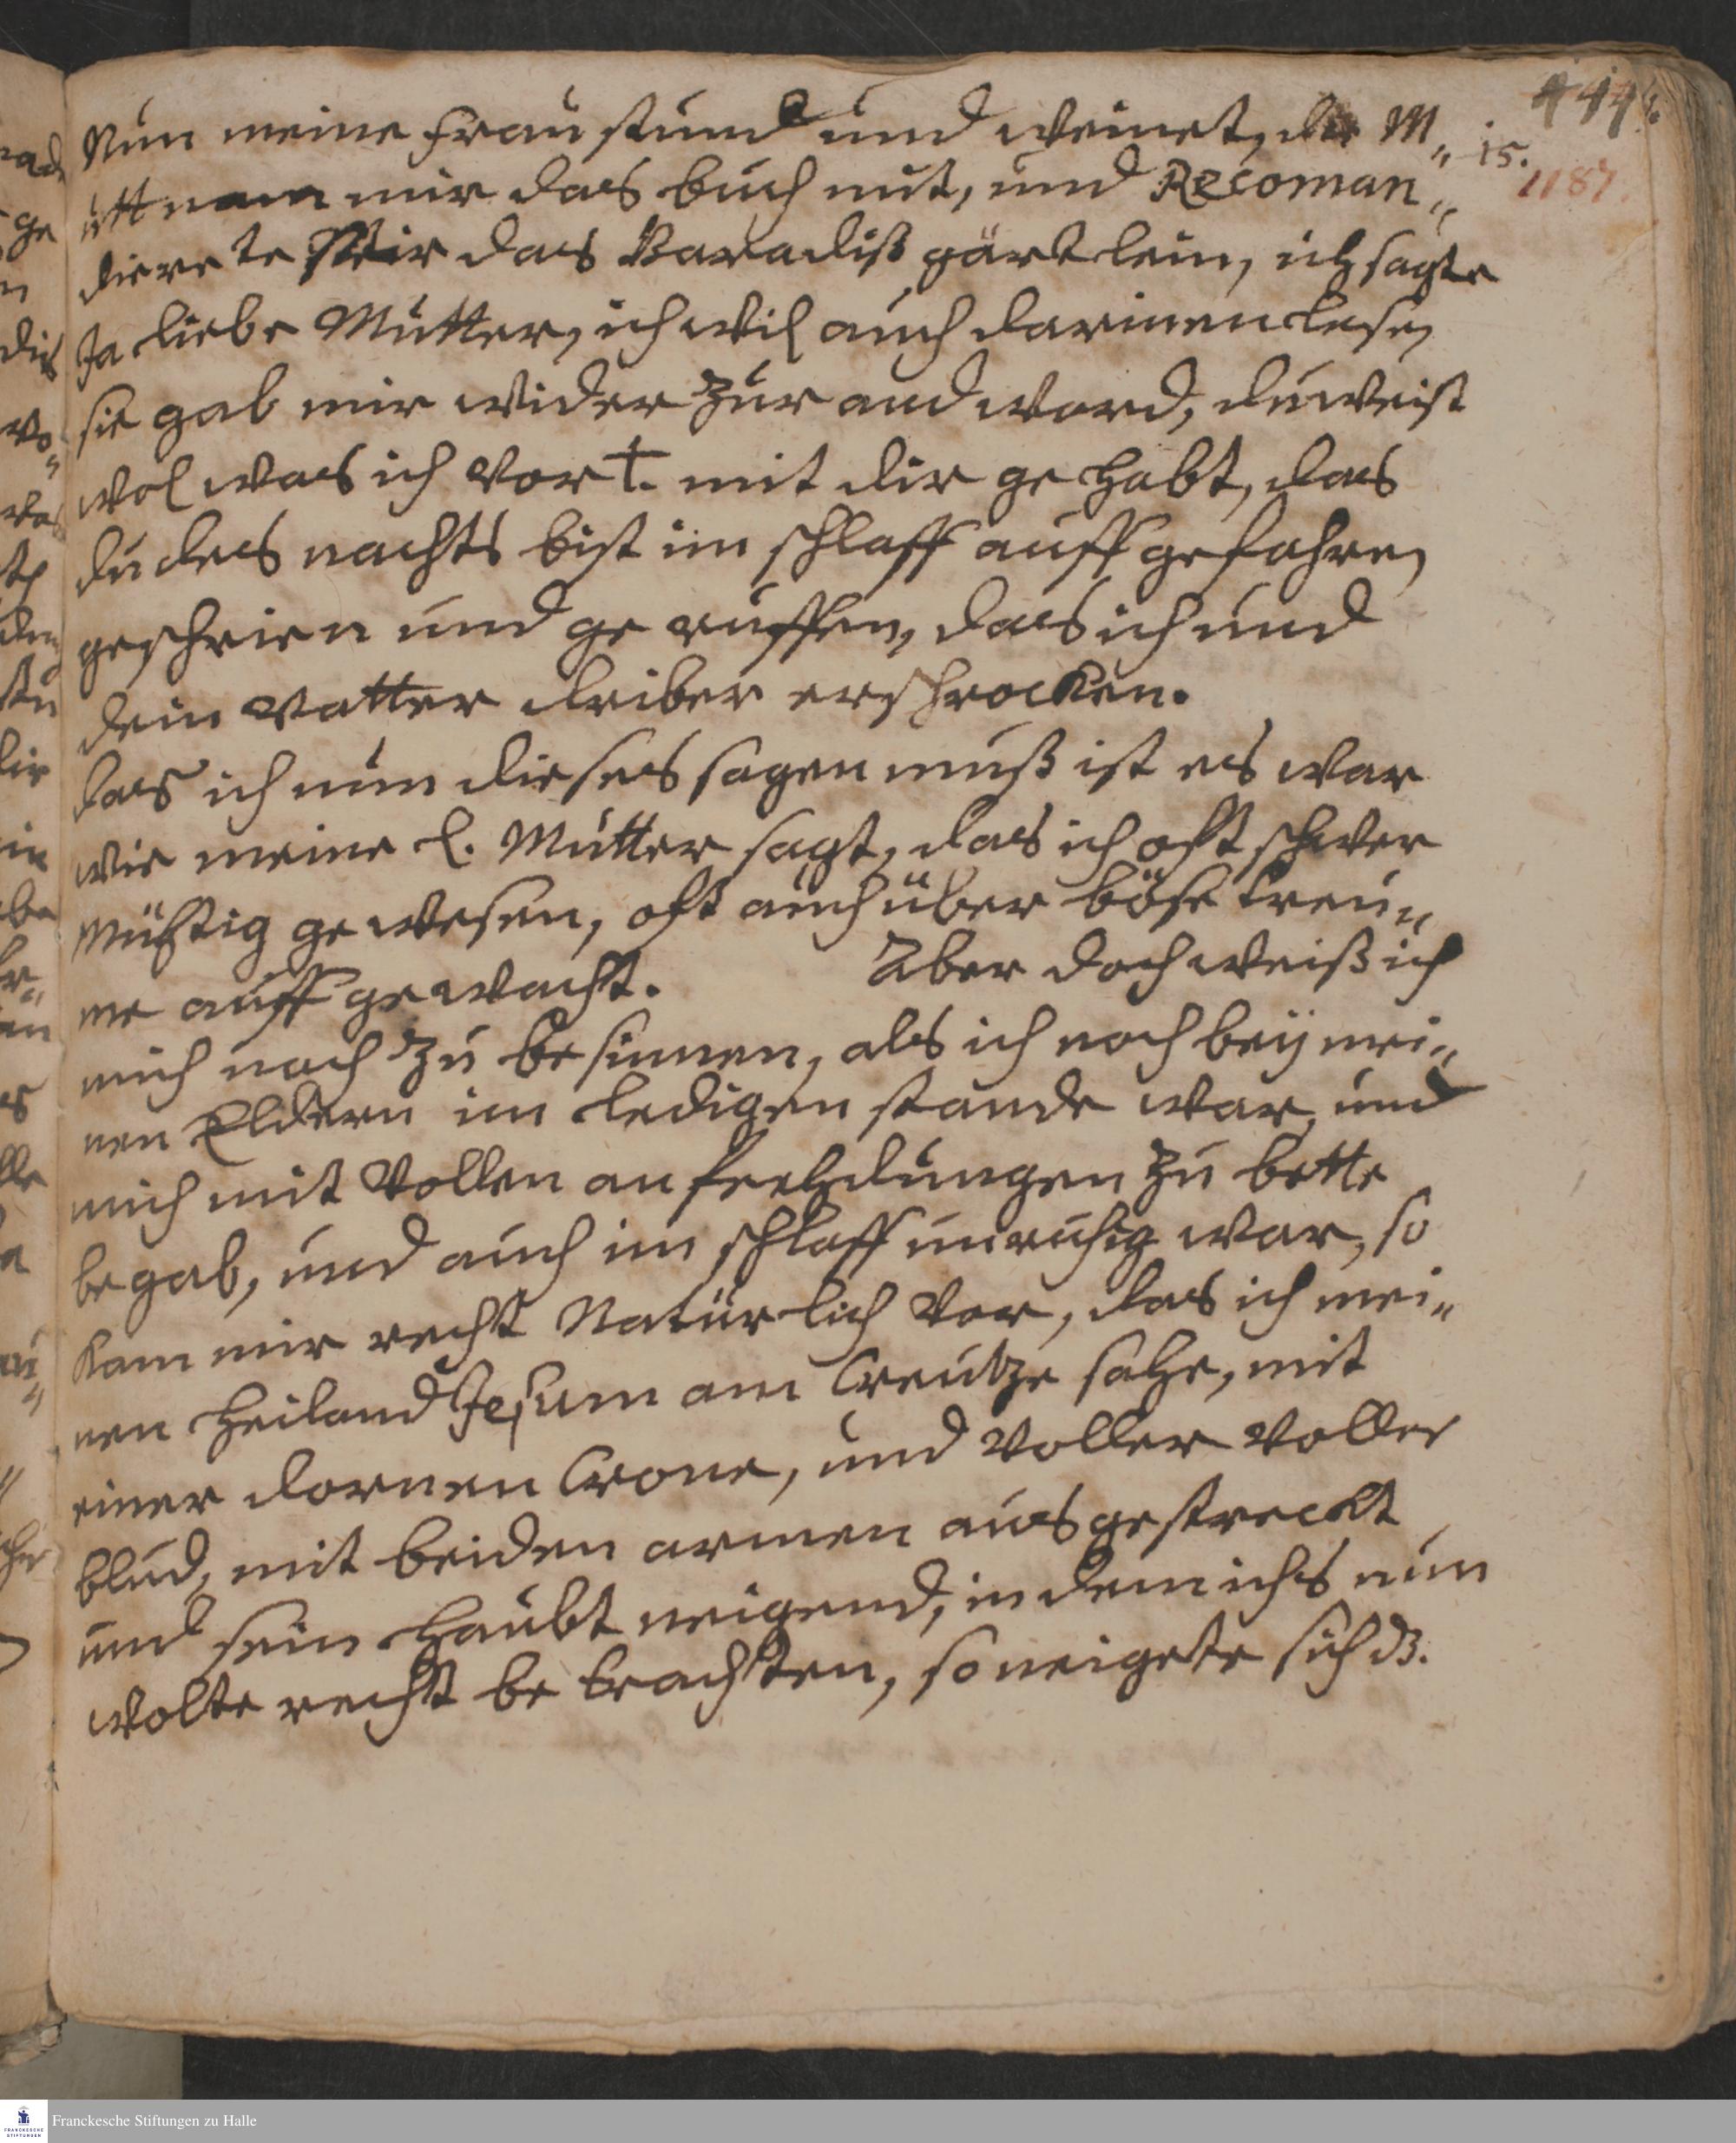 Nun meine frau stund und weinet, die M„
ütt nam mir das buch mit, und Recoman„
dierete Mir das Baradiß gärtlein, ich sagte
Ja liebe Mutter, ich wil auch darinnen lesen
sie gab mir wider zur andword, du weist
wol was ich vor †. mit dir gehabt, das
du des nachts bist im schlaff auff gefahren
geschrien und ge ruffen, das ich und
dein vatter driber erschrocken.
das ich nun dieses sagen muß ist es war
wie meine l. Mutter sagt, das ich oft schwer
Mühtig gewesen, oft auch über böse treu„
me auff gewacht. Aber doch weiß ich
mich noch zu besinnen, als ich noch beÿ mei„
nen Eldern im ledigen stande war, und
mich mit vollen anfechdungen zu bette
begab, und auch im schlaff unruhig war, so
kam mir recht Natürlich vor, das ich mei„
nen heiland Jesum am Creutze sahe, mit
einer dornen Crone, und voller voller
blud, mit beiden armen ausgestreckt
und sein haubt neigend, in dem ichs nun
wolte recht be trachten, so neigete sich ds.
15.
1187.
Franckesche Stiftungen zu Halle